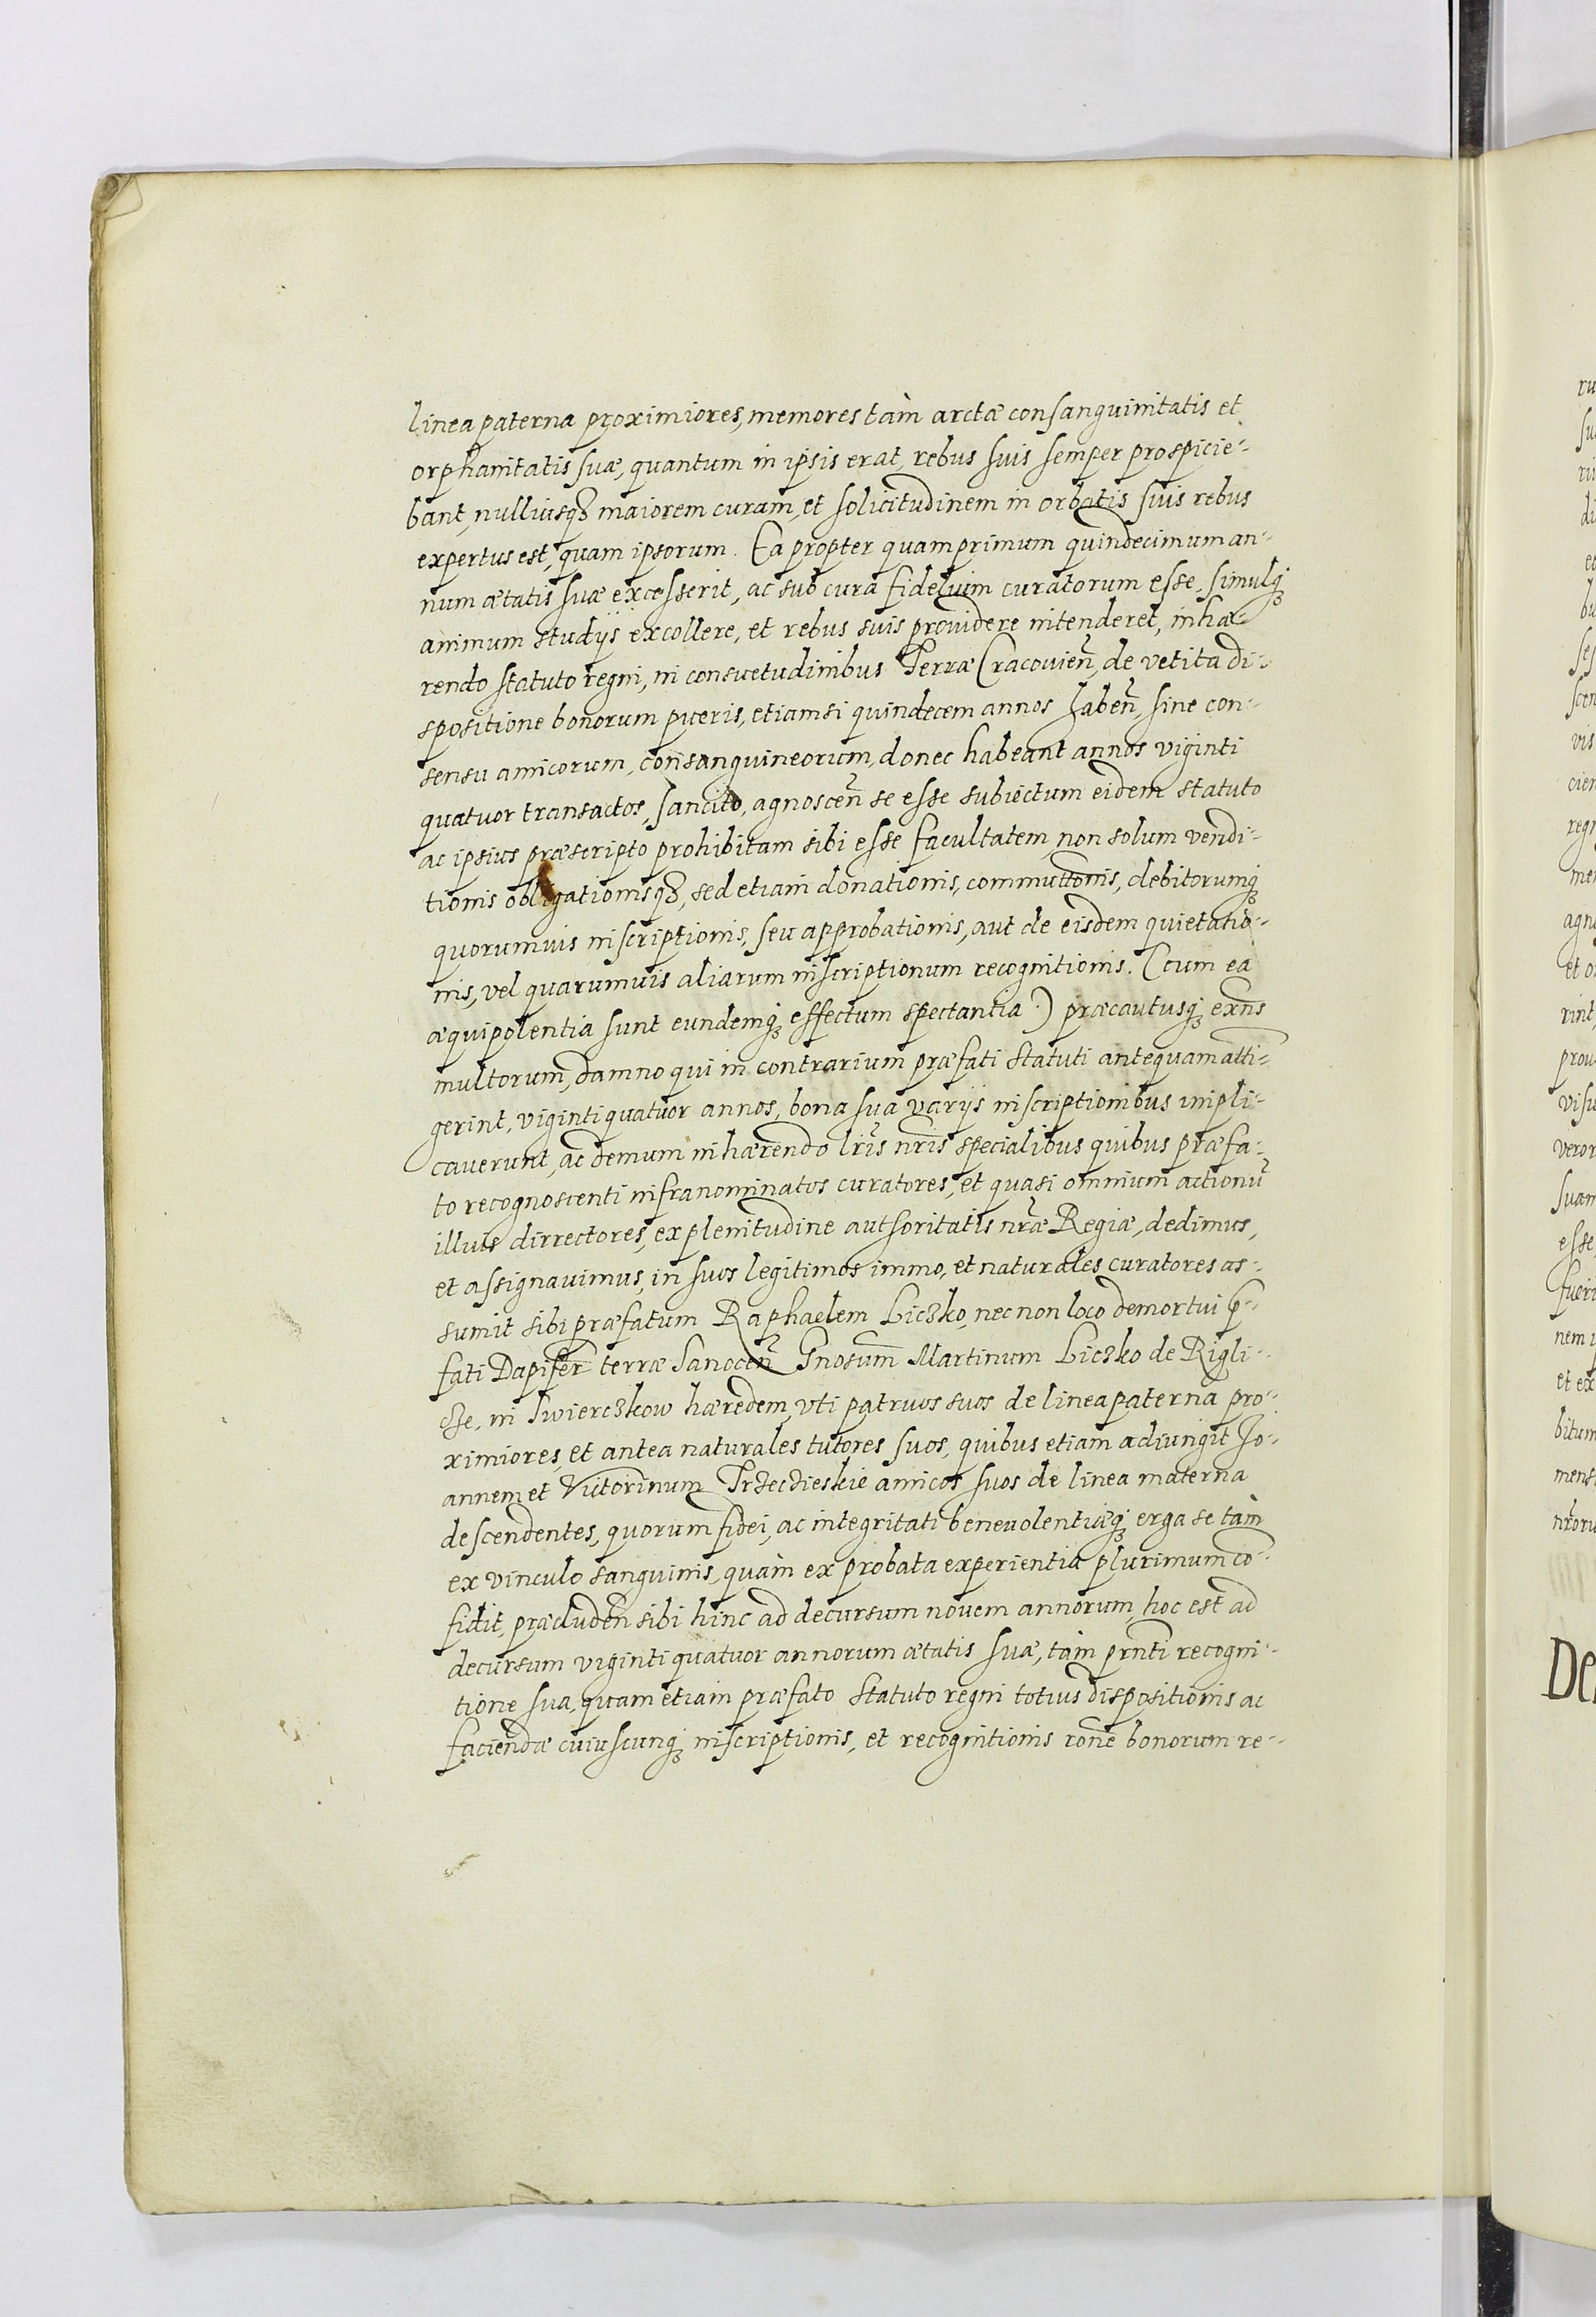 linea paterna proximiores, memores tam arctæ consanguinitatis et
orphanitatis suæ, quantum in ipsis erat, rebus suis semper prospicie-
bant, nulliusqꝫ maiorem curam, et solicitudinem in orbatis suis rebus
expertus est, quam ipsorum. Ea propter quamprimum quindecimum an-
num ætatis suæ excesserit, ac sub cura fidelium curatorum esse, simulqꝫ
animum studijs excollere, et rebus suis providere intenderet, inhæ-
rendo statuto regni, in consuetudinibus Terræ Cracovien̄, de vetita di-
spositione bonorum pueris, etiamsi quindecem annos haben̄, sine con-
sensu amicorum, consanguineorum, donec habeant annos viginti
quatuor transactos, sancito, agnoscen̄ se esse subiectum eidem statuto
ac ipsius præscripto prohibitam sibi esse facultatem, non solum vendi-
tionis obligationisqꝫ, sed etiam donationis, commuttonis, debitorumqꝫ
quorumvis inscriptionis, seu approbationis, aut de eisdem quietatio-
nis, vel quarumuis aliarum inscriptionum recognitionis. (cum ea
æquipolentia sunt eundemqꝫ effectum spectantia.) præcautusqꝫ exn̄s
multorum, damno qui in contrarium præfati statuti antequam atti-
gerint, viginti quatuor annos, bona sua varijs inscriptionibus impli-
cauerunt, ac demum inhærendo lr̄is nr̄is specialibus quibus præfa-
to recognoscenti infranominatos curatores, et quasi omnium actionū
illius dirrectores, ex plenitudine authoritatis nr̄æ Regiæ, dedimus,
et assignauimus, in suos legitimos immo, et naturales curatores as-
sumit sibi præfatum Raphaelem Liczko, nec non loco demortui p̄-
fati Dapifer̄ terræ Sanocen̄ Gnosum̄ Martinum Liczko de Rigli-
cze, in Swierczkow hæredem, vti patruos suos de linea paterna pro-
ximiores, et antea naturales tutores suos, quibus etiam adiungit Jo-
annem et Victorinum Trzecieskie amicos suos de linea materna
descendentes, quorum fidei, ac integritati benevolentiæqꝫ erga se tam
ex vinculo sanguinis, quàm ex probata experientia plurimum co-
fidit, præcluden̄ sibi hinc ad decursum novem annorum, hoc est ad
decursum viginti quatuor annorum ætatis suæ, tàm prn̄ti recogni-
tione sua, quam etiam præfato statuto regni totius dispositionis ac
faciendæ cuiuscunqꝫ inscriptionis, et recognitionis rōne bonorum re-